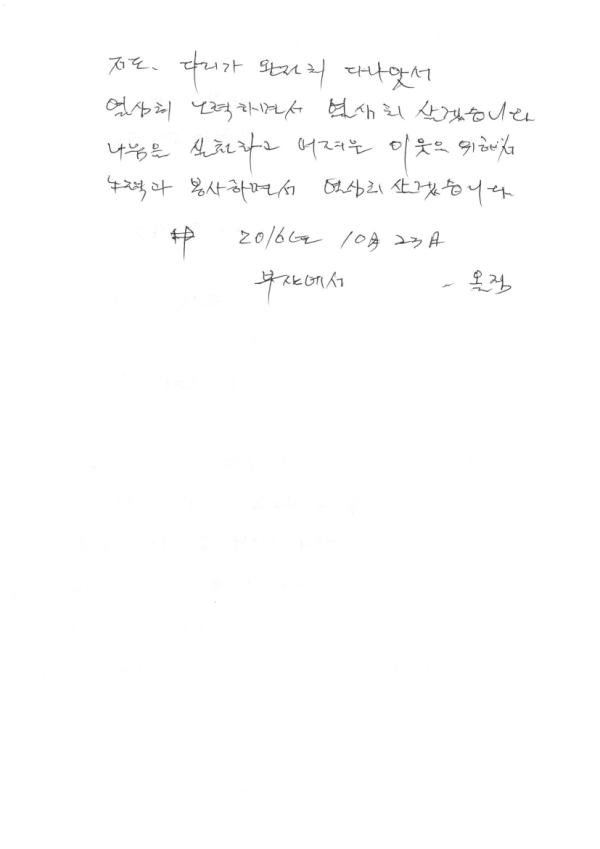 저도. 다리가 완전히 다나앗서
열심히 노력하면서 열심히 살겠습니다
나눔을 실천하고 어려운 이웃을 위해서
노력과 봉사하면서 열심히 살겠습니다
2016년 10月 23日
부산에서 - 올림